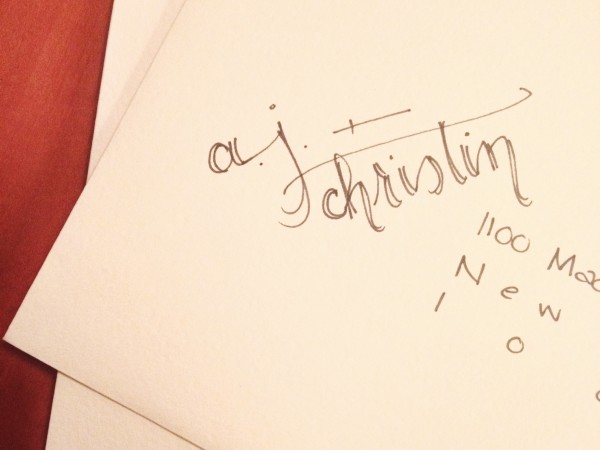 a.j. +
christin
1100
New
10